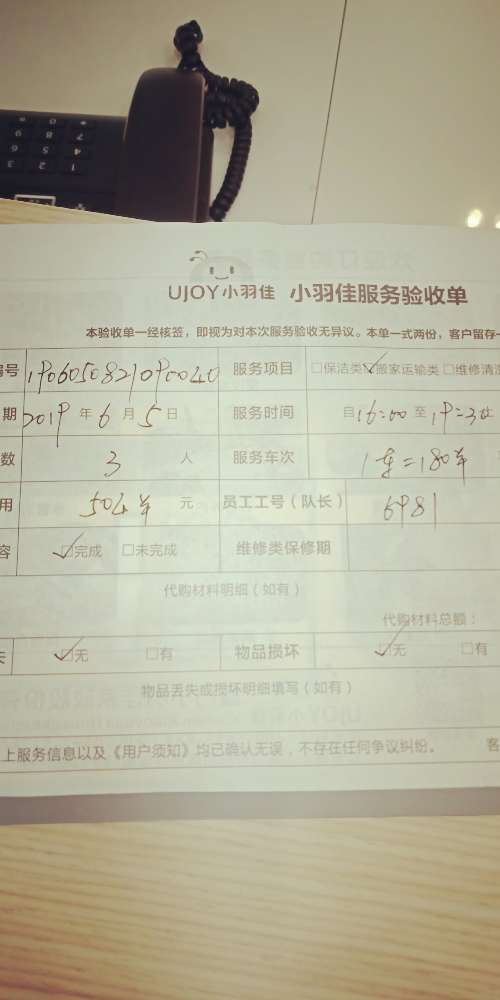 UJOY小羽佳 小羽佳服务验收单
本验收单一经核签，即视为对本次服务验收无异议。本单一式两份，客户留存一
编号 1906050821090040 服务项目 □保洁类☑搬家运输类□维修清洗
期 2019年6月5日 服务时间 自16:00至19:30止
数 3人 服务车次 1车=180单
用 504单元 员工工号（队长） 6981
容 ☑完成 □未完成 维修类保修期
代购材料明细（如有）
代购材料总额：
失 ☑无 □有 物品损坏 ☑无 □有
物品丢失或损坏明细填写（如有）
上服务信息以及《用户须知》均已确认无误，不存在任何争议纠纷。 客